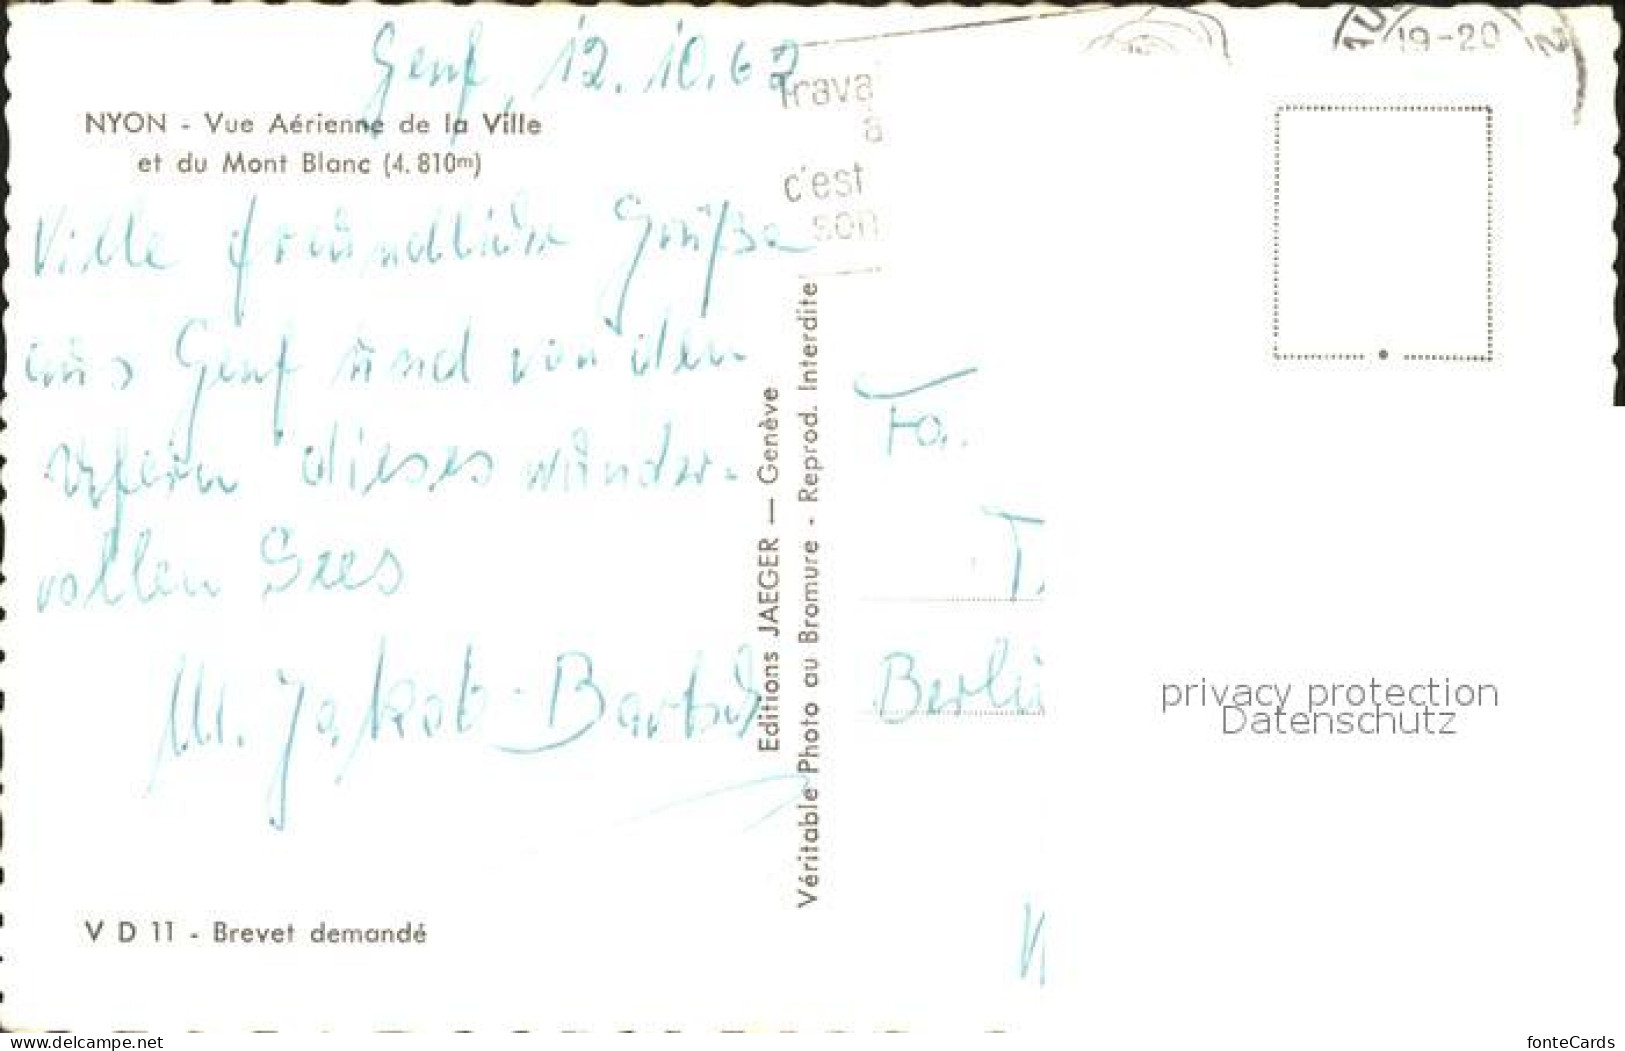 Genf, 12.10.62
NYON - Vue Aérienne de la Ville
et du Mont Blanc (4.810m)
Ville freundliche Grüße
aus Genf und von den
Ufern dieses wunder-
vollen Sees
M. Jakob-Bartsch
V D 11 - Brevet demandé
Editions JAEGER — Genève
Véritable Photo au Bromure - Reprod. Interdite
Trava
à
c'est
son
19-20
Fa.
T.
Berli
privacy protection
Datenschutz
www.delcampe.net
fonteCards